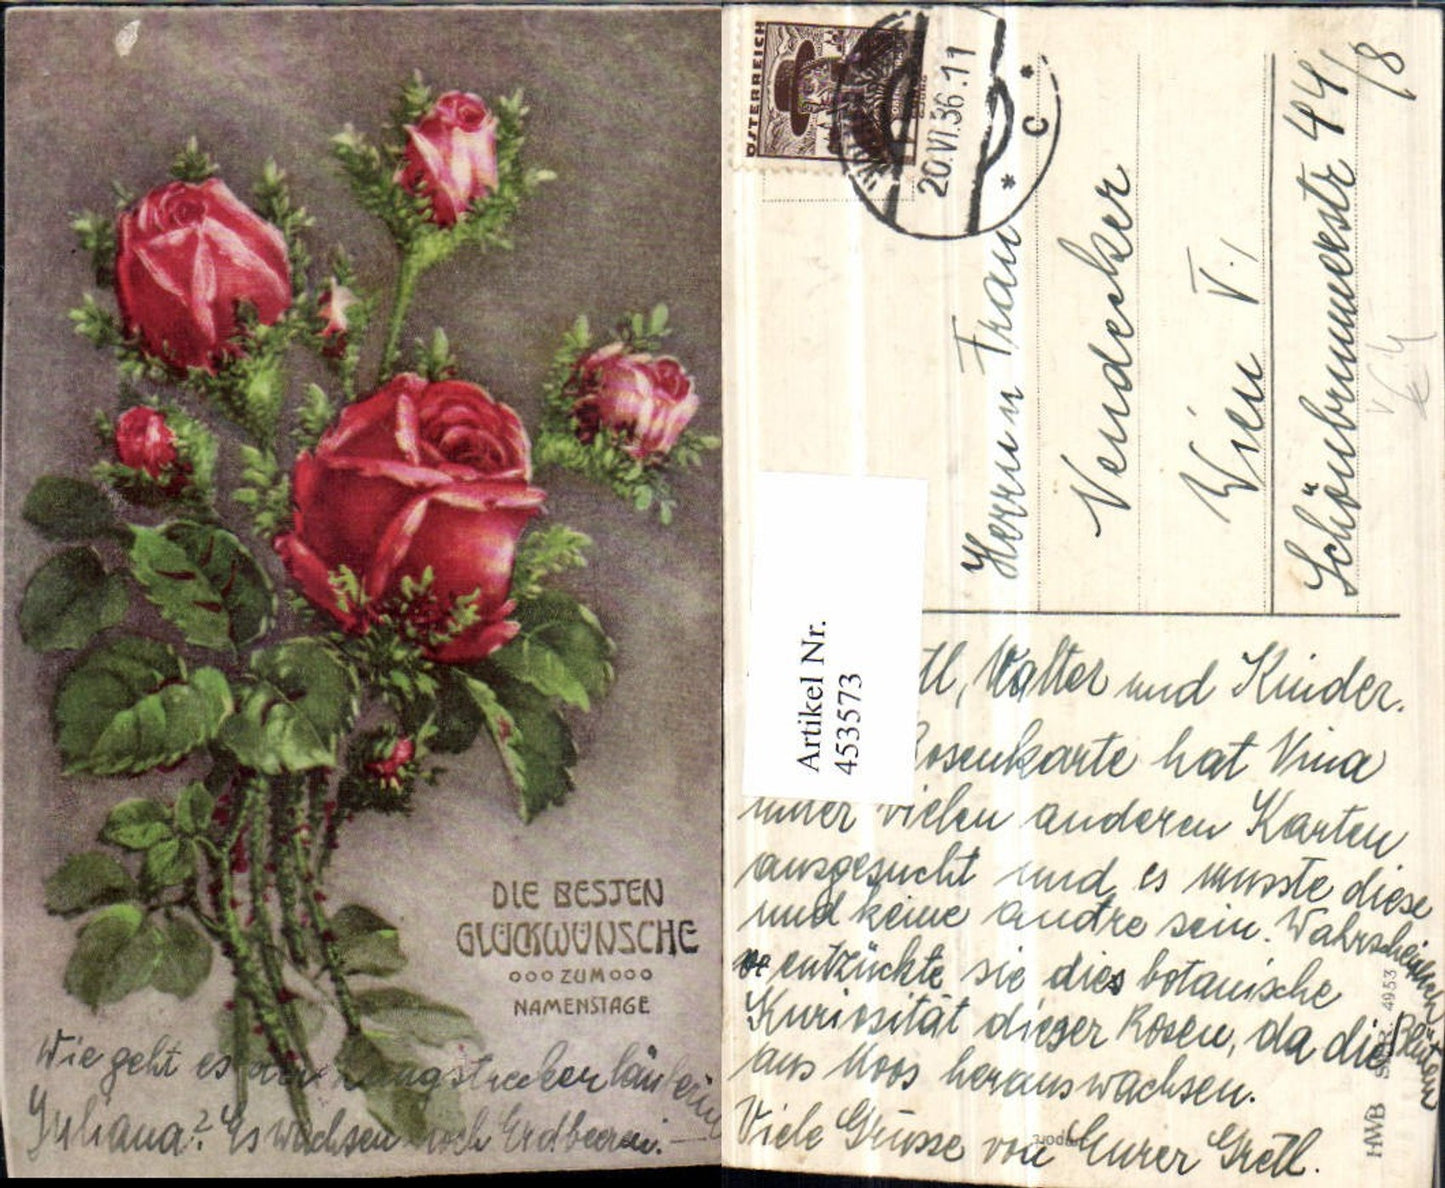 DIE BESTEN
GLÜCKWÜNSCHE
ZUM
NAMENSTAGE
Wie geht es der Langstreckenläuferin
Juliana? Es wachsen noch Erdbeeren.
ÖSTERREICH
20.VI.36.11
* C *
Herrn u Frau
Vendecker
Wien V./
Schönbrunnerstr 44/8
Artikel Nr.
453573
tl, Walter und Kinder.
Rosenkarte hat Nina
unter vielen anderen Karten
ausgesucht und es musste diese
und keine andre sein. Wahrscheinlich
entzückte sie die botanische
Kuriosität dieser Rosen, da die Blüten
aus Moos herauswachsen.
Viele Grüsse von Eurer Gretl.
HWB SER. 4953